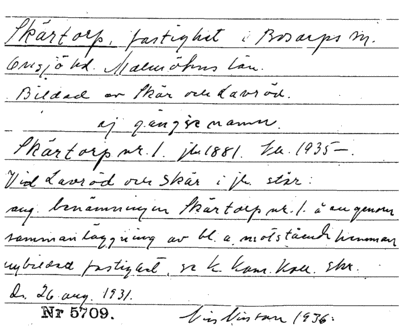 Skärtorp, fastighet i Bosarps sn.
Onsjö hd. Malmöhus län.
Bildad av Skär och Lavröd.
ej gängse namn.
Skärtorp nr. 1. jb 1881. 1935–.
Vid Lavröd och Skär i jb. står:
ang. benämningen Skärtorp nr. 1. å en genom
sammanläggning av bl. a. motstående hemman
nybildad fastighet, se K. Kam. Koll. skr.
d. 26 aug. 1931.
Nr 5709. 1936.